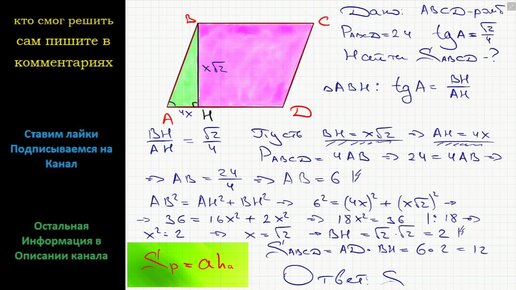 кто смог решить
сам пишите в
комментариях
Ставим лайки
Подписываемся на
Канал
Остальная
Информация в
Описании канала
B
C
x√2
4x
A
H
D
Дано: ABCD-ромб
PABCD=24 tgA=√2/4
Найти SABCD-?
△ABH: tgA=BH/AH
BH/AH=√2/4 Пусть BH=x√2 ⇒ AH=4x
PABCD=4AB ⇒ 24=4AB ⇒
⇒ AB=24/4 ⇒ AB=6
AB²=AH²+BH² ⇒ 6²=(4x)²+(x√2)² ⇒
⇒ 36=16x²+2x² ⇒ 18x²=36 |:18 ⇒
x²=2 ⇒ x=√2 ⇒ BH=√2·√2=2
Sр=aha
SABCD=AD·BH=6·2=12
Ответ: S